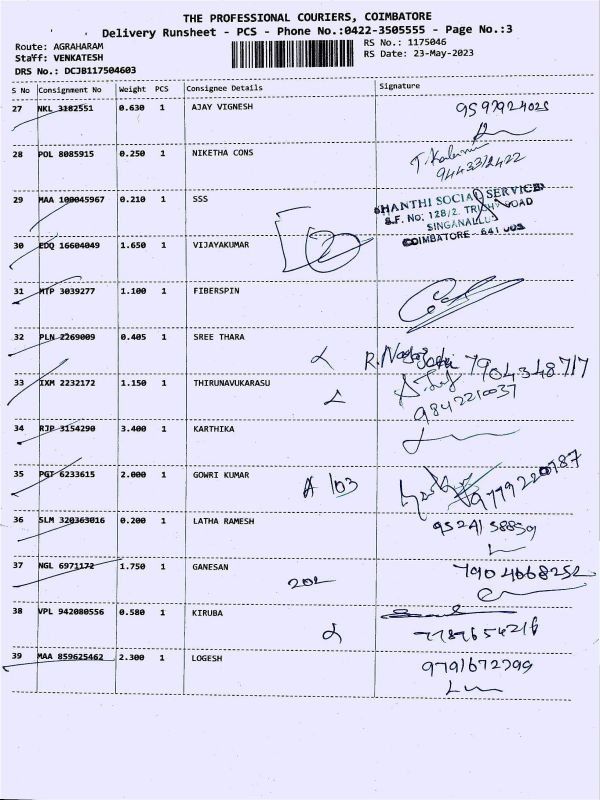 THE PROFESSIONAL COURIERS, COIMBATORE
Delivery Runsheet - PCS - Phone No.:0422-3505555 - Page No.:3
Route: AGRAHARAM
Staff: VENKATESH
DRS No.: DCJB117504603
RS No.: 1175046
RS Date: 23-May-2023
S No Consignment No Weight PCS Consignee Details Signature
27 NKL 3182551 0.630 1 AJAY VIGNESH
28 POL 8085915 0.250 1 NIKETHA CONS
9443312422
29 MAA 100045967 0.210 1 SSS
SHANTHI SOCIAL SERVICE
S.F. No: 128/2. TRICHY ROAD
SINGANALLUR
COIMBATORE - 641 005
30 EDQ 16604049 1.650 1 VIJAYAKUMAR
31 MTP 3039277 1.100 1 FIBERSPIN
32 PLN 2269009 0.405 1 SREE THARA
7904348717
33 IXM 2232172 1.150 1 THIRUNAVUKARASU
9842210037
34 RJP 3154290 3.400 1 KARTHIKA
35 PGT 6233615 2.000 1 GOWRI KUMAR A 103
9779220787
36 SLM 320363016 0.200 1 LATHA RAMESH
9524158859
37 NGL 6971172 1.750 1 GANESAN 202
7904668252
38 VPL 942080556 0.580 1 KIRUBA
39 MAA 859625462 2.300 1 LOGESH
9791672799